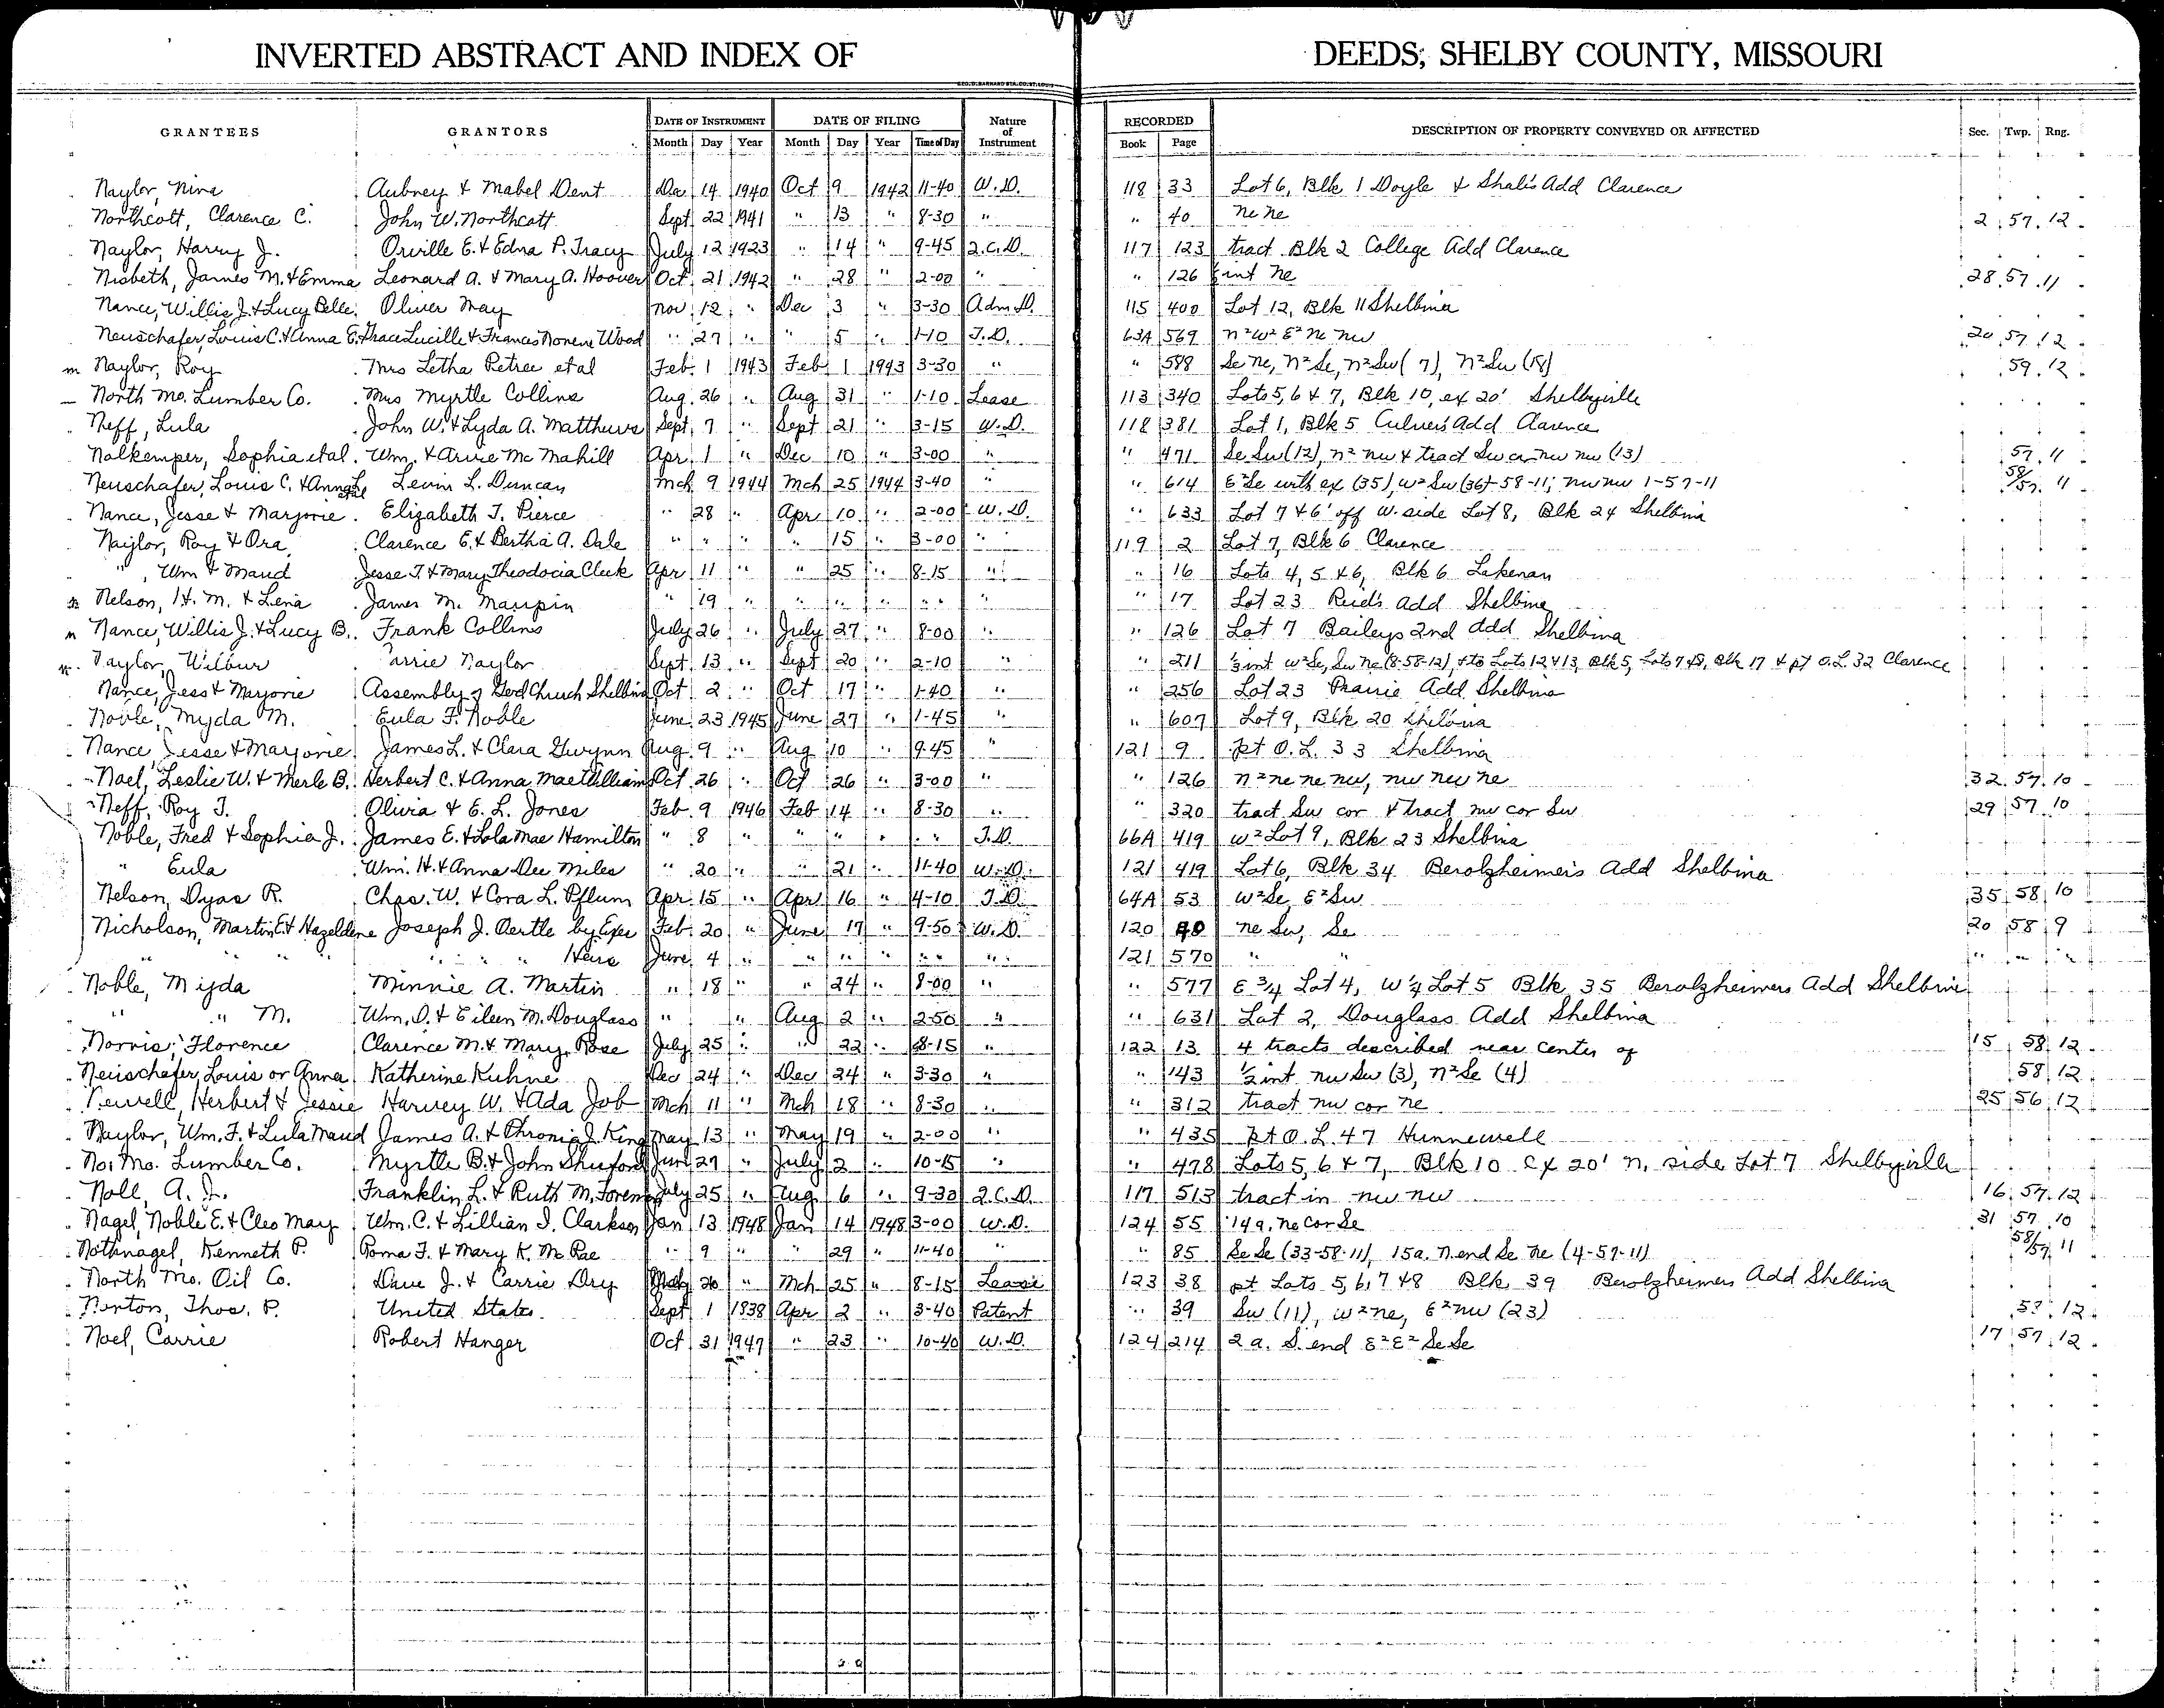 INVERTED ABSTRACT AND INDEX OF DEEDS, SHELBY COUNTY, MISSOURI
GRANTEES GRANTORS DATE OF INSTRUMENT DATE OF FILING Nature of Instrument RECORDED DESCRIPTION OF PROPERTY CONVEYED OR AFFECTED Sec. Twp. Rng.
Month Day Year Month Day Year Time of Day Book Page
Naylor, Nina Aubrey & Mabel Dent Dec 14 1940 Oct 9 1942 11-40 W.D. 118 33 Lot 6, Blk 1 Doyle & Shale's Add Clarence
Northcott, Clarence C. John W. Northcott Sept 22 1941 " 13 " 8-30 " " 40 ne ne 2 57 12
Naylor, Harry J. Orville E. & Edna P. Tracy July 12 1923 " 14 " 9-45 Q.C.D. 117 123 tract Blk 2 College Add Clarence
Nisbeth, James M. & Emma Leonard A. & Mary A. Hoover Oct 21 1942 " 28 " 2-00 " " 126 int ne 28 57 11
Nance, Willis J. & Lucy Belle Oliver May Nov 12 " Dec 3 " 3-30 Adm D. 115 400 Lot 12, Blk 11 Shelbina
Neuschafer, Louis C. & Anna E. Grace Lucille & Frances Norene Wood " 27 " " 5 " 1-10 T.D. 63A 569 n² w² E² ne nw 20 57 12
m Naylor, Roy Mrs Letha Petree etal Feb 1 1943 Feb 1 1943 3-30 " " 588 Se ne, n² Se, n² Sw (7), n² Sw (18) 59 12
North Mo. Lumber Co. Mrs Myrtle Collins Aug 26 " Aug 31 " 1-10 Lease 113 340 Lots 5, 6 & 7, Blk 10, ex 20' Shelbyville
Neff, Lula John W. & Lyda A. Matthews Sept 7 " Sept 21 " 3-15 W.D. 118 381 Lot 1, Blk 5 Culver's Add Clarence
Nolkemper, Sophia etal. Wm. & Arvie McMahill Apr 1 " Dec 10 " 3-00 " " 471 Se Sw (12), n² nw & tract Sw cr nw nw (13) 57 11
Neuschafer, Louis C. & Anna Levin L. Duncan Mch 9 1944 Mch 25 1944 3-40 " " 614 E² Se with ex (35), w² Sw (36)-58-11; nw nw 1-57-11 58/57 11
Nance, Jesse & Marjorie Elizabeth T. Pierce " 28 " Apr 10 " 2-00 W.D. " 633 Lot 7 & 6' off W. side Lot 8, Blk 24 Shelbina
Naylor, Roy & Ora Clarence E. & Bertha A. Dale " " " " 15 " 3-00 " 119 2 Lot 7, Blk 6 Clarence
" , Wm & Maud Jesse T. & Mary Theodocia Cleek Apr 11 " " 25 " 8-15 " " 16 Lots 4, 5 & 6, Blk 6 Lakenan
Nelson, H. M. & Lena James M. Maupin " 19 " " " " " " " 17 Lot 23 Reid's Add Shelbina
Nance, Willis J. & Lucy B. Frank Collins July 26 " July 27 " 8-00 " " 126 Lot 7 Baileys 2nd Add Shelbina
Naylor, Wilbur Carrie Naylor Sept 13 " Sept 20 " 2-10 " " 211 ⅓ int w² Se, Sw ne (8-58-12), & to Lots 12 & 13, Blk 5, Lots 7 & 8, Blk 17 & pt O.L. 32 Clarence
Nance, Jess & Marjorie Assembly of God Church Shelbina Oct 2 " Oct 17 " 1-40 " " 256 Lot 23 Prairie Add Shelbina
Noble, Myda M. Eula F. Noble June 23 1945 June 27 " 1-45 " " 607 Lot 9, Blk 20 Shelbina
Nance, Jesse & Marjorie James L. & Clara Gwynn Aug 9 " Aug 10 " 9-45 " 121 9 pt O.L. 33 Shelbina
Noel, Leslie W. & Merle B. Herbert C. & Anna Mae Williams Oct 26 " Oct 26 " 3-00 " " 126 n² ne ne nw, nw nw ne 32 57 10
Neff, Roy T. Olivia & E. L. Jones Feb 9 1946 Feb 14 " 8-30 " " 320 tract Sw cor & tract nw cor Sw 29 57 10
Noble, Fred & Sophia J. James E. & Lola Mae Hamilton " 8 " " " " " T.D. 66A 419 w² Lot 9, Blk 23 Shelbina
" Eula Wm. H. & Anna Dee Miles " 20 " " 21 " 11-40 W.D. 121 419 Lot 6, Blk 34 Berolzheimer's Add Shelbina
Nelson, Dyas R. Chas. W. & Cora L. Pflum Apr 15 " Apr 16 " 4-10 T.D. 64A 53 w² Se, E² Sw 35 58 10
Nicholson, Martin E. & Hazeldene Joseph J. Oertle by Exec Feb 20 " June 17 " 9-50 W.D. 120 90 ne Sw, Se 20 58 9
" " " " " " " Heirs June 4 " " " " " " 121 570 " " " " "
Noble, Myda Minnie A. Martin " 18 " " 24 " 8-00 " " 577 E ¾ Lot 4, W ¼ Lot 5 Blk 35 Berolzheimers Add Shelbina
" " M. Wm. D. & Eileen M. Douglass " " Aug 2 " 2-50 " " 631 Lot 2, Douglass Add Shelbina
Norris, Florence Clarence M. & Mary Rose July 25 " " 22 " 8-15 " 122 13 4 tracts described near center of 15 58 12
Neuschafer, Louis or Anna Katherine Kuhne Dec 24 " Dec 24 " 3-30 " " 143 ½ int nw Sw (3), n² Se (4) 58 12
Newell, Herbert & Jessie Harvey W. & Ada Job Mch 11 " Mch 18 " 8-30 " " 312 tract nw cor ne 25 56 12
Naylor, Wm. F. & Lula Maud James A. & Phronia J. King May 13 " May 19 " 2-00 " " 435 pt O.L. 47 Hunnewell
No. Mo. Lumber Co. Myrtle B. & John Shuford June 27 " July 2 " 10-15 " " 478 Lots 5, 6 & 7, Blk 10 ex 20' n. side Lot 7 Shelbyville
Noll, A. J. Franklin L. & Ruth M. Foreman July 25 " Aug 6 " 9-30 Q.C.D. 117 513 tract in nw nw 16 57 12
Nagel, Noble E. & Cleo May Wm. C. & Lillian I. Clarkson Jan 13 1948 Jan 14 1948 3-00 W.D. 124 55 14a. ne cor Se 31 57 10
Nothnagel, Kenneth P. Roma F. & Mary K. McRae " 9 " " 29 " 11-40 " " 85 Se Se (33-58-11), 15a. n. end Se ne (4-57-11) 58/57 11
North Mo. Oil Co. Dave J. & Carrie Dry 20 " Mch 25 " 8-15 Lease 123 38 pt Lots 5, 6, 7 & 8 Blk 39 Berolzheimers Add Shelbina
Thos. P. United States Sept 1 1838 Apr 2 " 3-40 Patent " 39 Sw (11), w² ne, E² nw (23) 57 12
Noel, Carrie Robert Hanger Oct 31 1947 " 23 " 10-40 W.D. 124 214 2 a. S. end E² E² Se Se 17 57 12